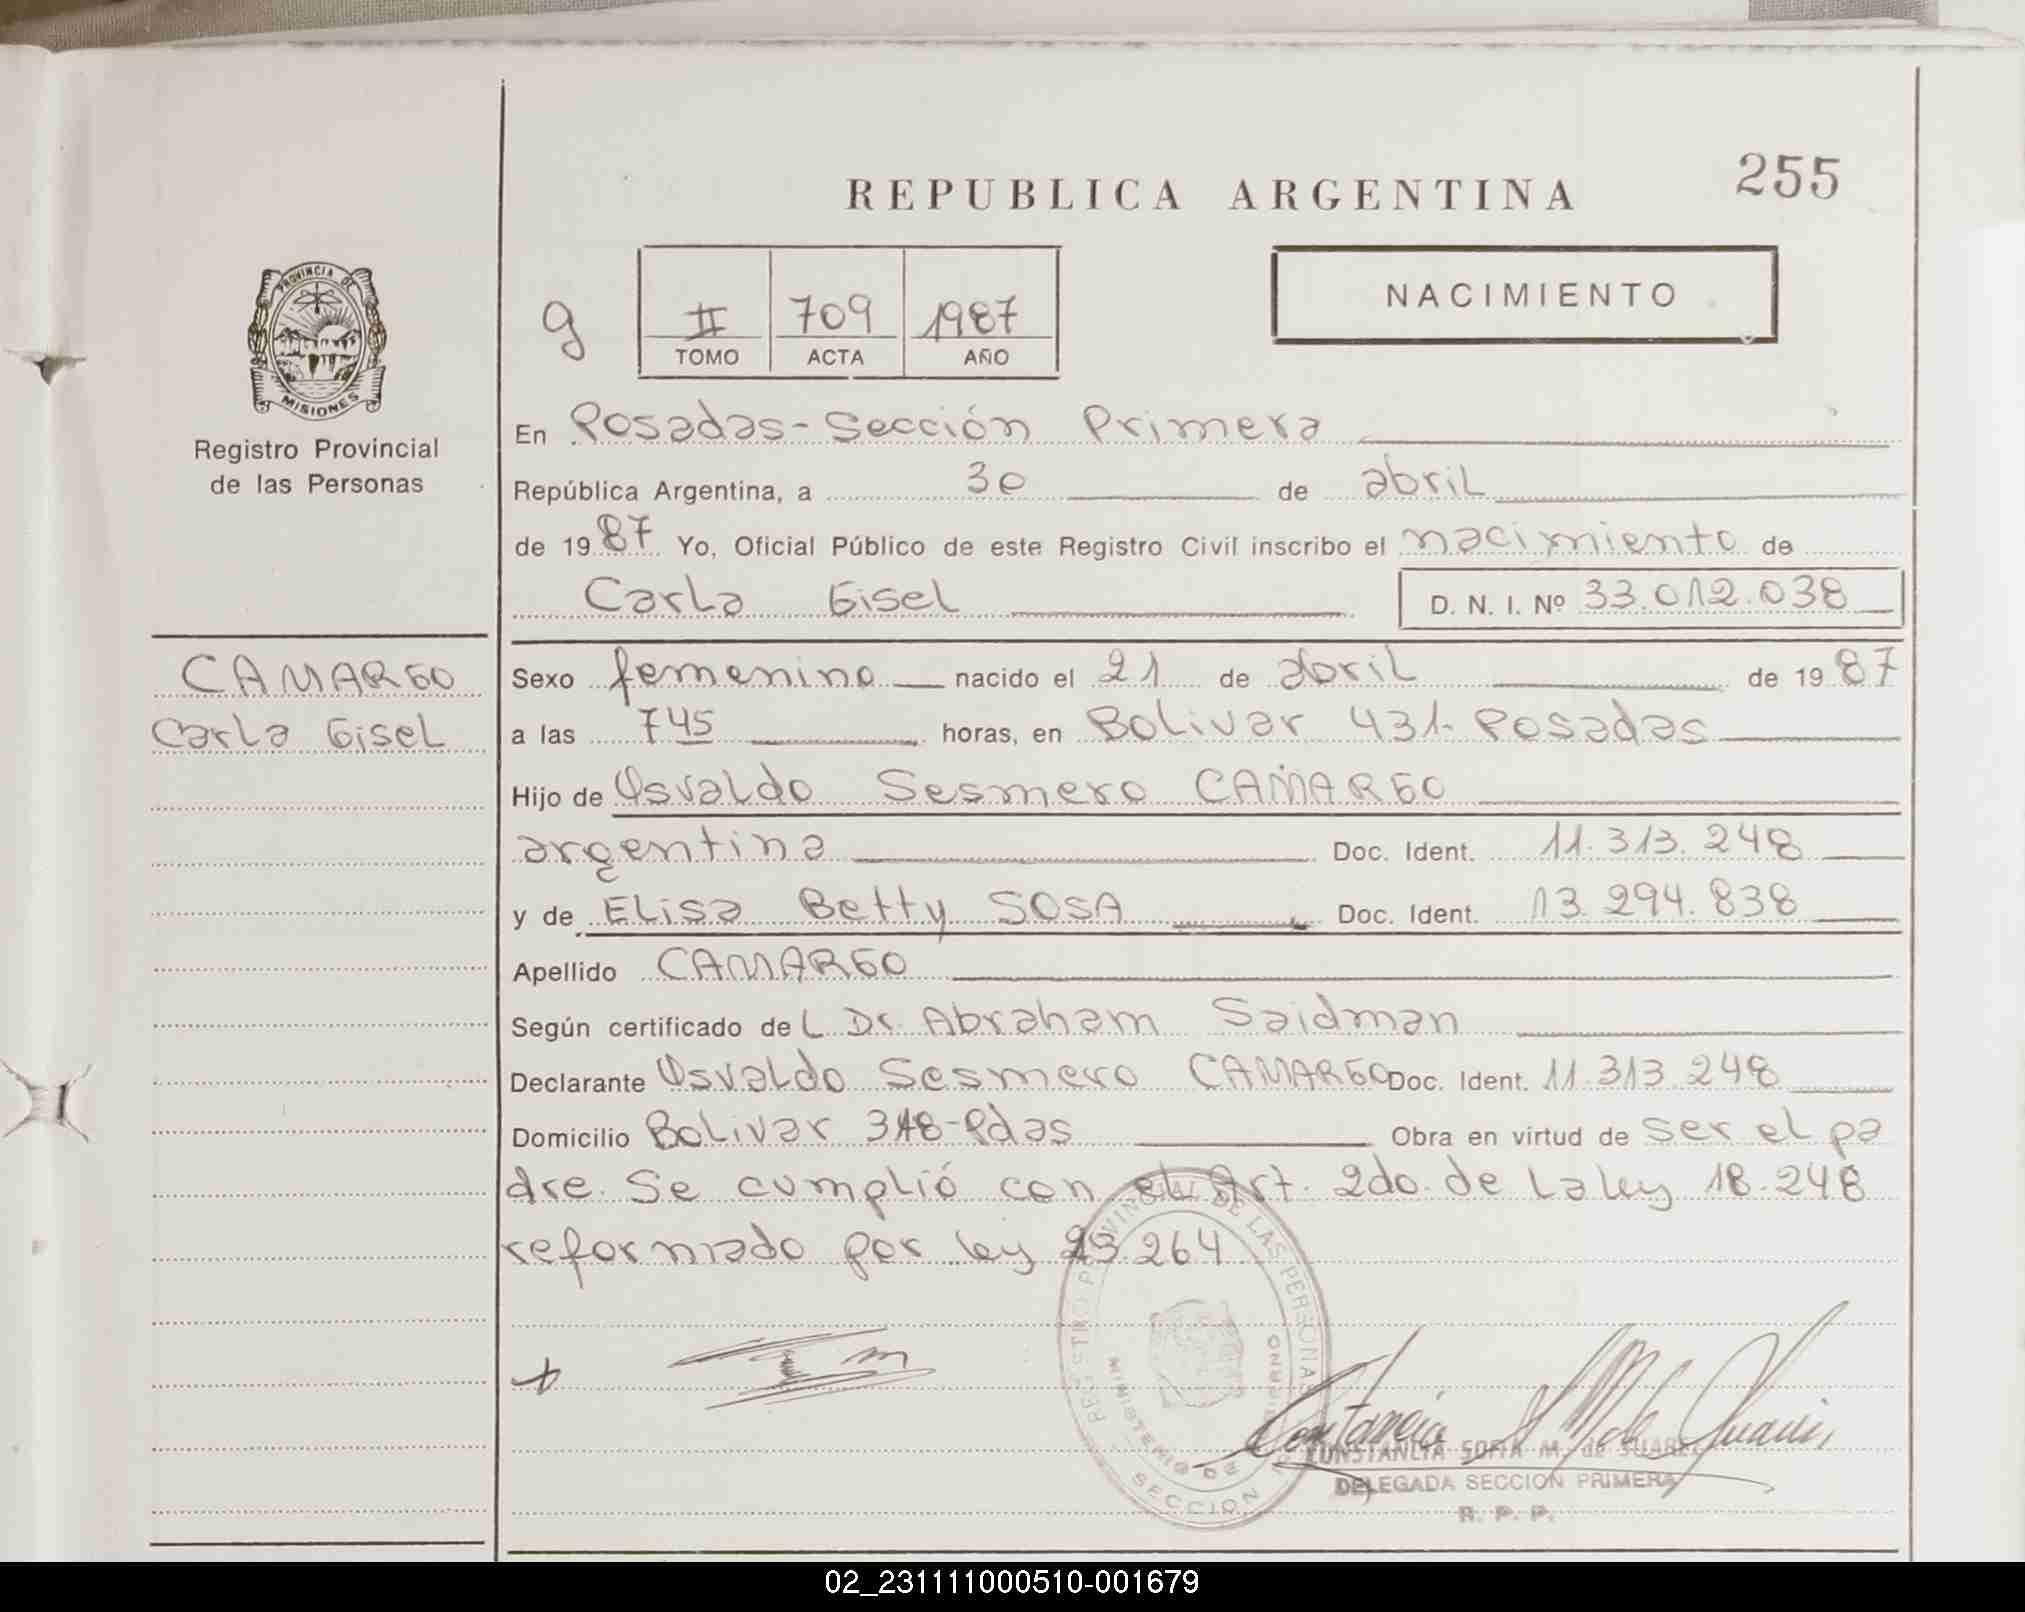 255
REPUBLICA ARGENTINA
PROVINCIA DE
MISIONES
Registro Provincial
de las Personas
g
II 709 1987
TOMO ACTA AÑO
NACIMIENTO
En Posadas-Sección Primera
República Argentina, a 30 de abril
de 1987 Yo, Oficial Público de este Registro Civil inscribo el nacimiento de
Carla Gisel D. N. I. Nº 33.012.038
CAMARGO
Carla Gisel
Sexo femenino nacido el 21 de abril de 1987
a las 745 horas, en Bolivar 431-Posadas
Hijo de Osvaldo Sesmero CAMARGO
argentina Doc. Ident. 11.313.248
y de Elisa Betty SOSA Doc. Ident. 13.294.838
Apellido CAMARGO
Según certificado del Dr. Abraham Saidman
Declarante Osvaldo Sesmero CAMARGO Doc. Ident. 11.313.248
Domicilio Bolivar 318-Pdas Obra en virtud de ser el pa
dre. Se cumplió con el Art. 2do. de La ley 18.248
reformado por ley 23.264
REGISTRO PROVINCIAL DE LAS PERSONAS
MINISTERIO DE GOBIERNO
SECCION
CONSTANCIA SOFIA M. de SUAREZ
DELEGADA SECCION PRIMERA
R. P. P.
02_231111000510-001679